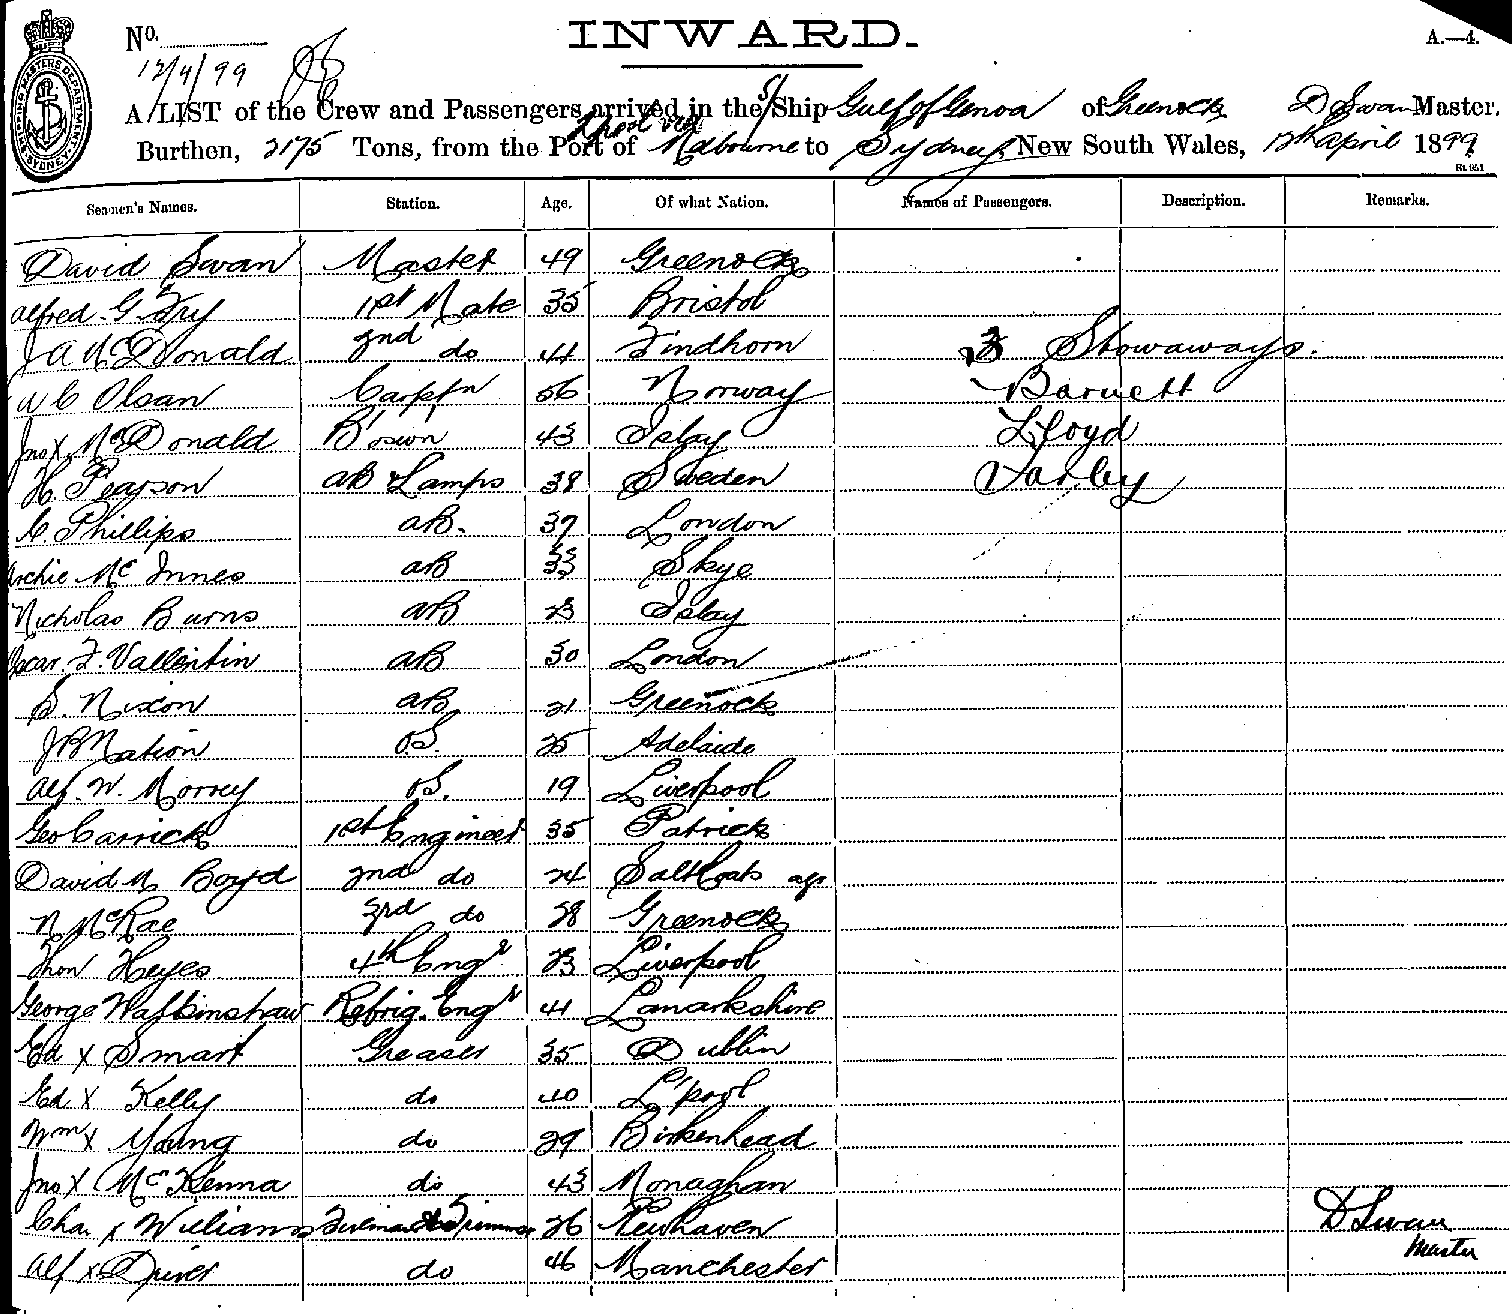 INWARD.
No.
A.—4.
12/4/99
A LIST of the Crew and Passengers arrived in the S/ Ship Gulf of Genoa of Greenock D Swan Master.
L'pool via
Burthen, 2175 Tons, from the Port of Melbourne to Sydney, New South Wales, 12th April 1899
Seamen's Names. Station. Age. Of what Nation. Names of Passengers. Description. Remarks.
David Swan Master 49 Greenock
Alfred G. Fry 1st Mate 35 Bristol
J A McDonald 2nd do 44 Findhorn 3 Stowaways.
A C Olsan Carptn 56 Norway Barnett
Jno x McDonald Bosun 43 Islay Lloyd
H. Pearson AB Lamps 38 Sweden Varley
C. Phillips AB. 37 London
Archie McInnes AB 33 Skye
Nicholas Burns AB 23 Islay
Oscar. F. Vallentin AB 30 London
S. Nixon AB 21 Greenock
J B Nation O.S. 25 Adelaide
Alf. W. Morrey O.S. 19 Liverpool
Geo Carrick 1st Engineer 35 Patrick
David M Boyd 2nd do 24 Saltcoats
N. McRae 3rd do 28 Greenock
Thos Heyes 4th Engr 23 Liverpool
George Walkinshaw Refrig. Engr 41 Lanarkshire
Ed x Smart Greaser 35 Dublin
Ed x Kelly do 40 L'pool
Wm x Young do 29 Birkenhead
Jno x McKenna do 43 Monaghan
Chas x Williams Fireman & Trimmer 26 Newhaven D Swan
Master
Alf x Driver do 46 Manchester